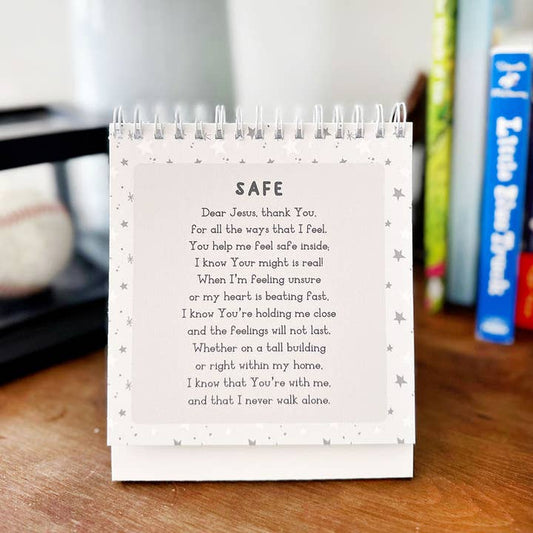 SAFE
Dear Jesus, thank You,
for all the ways that I feel.
You help me feel safe inside;
I know Your might is real!
When I'm feeling unsure
or my heart is beating fast,
I know You're holding me close
and the feelings will not last.
Whether on a tall building
or right within my home,
I know that You're with me,
and that I never walk alone.
Little Blue Truck